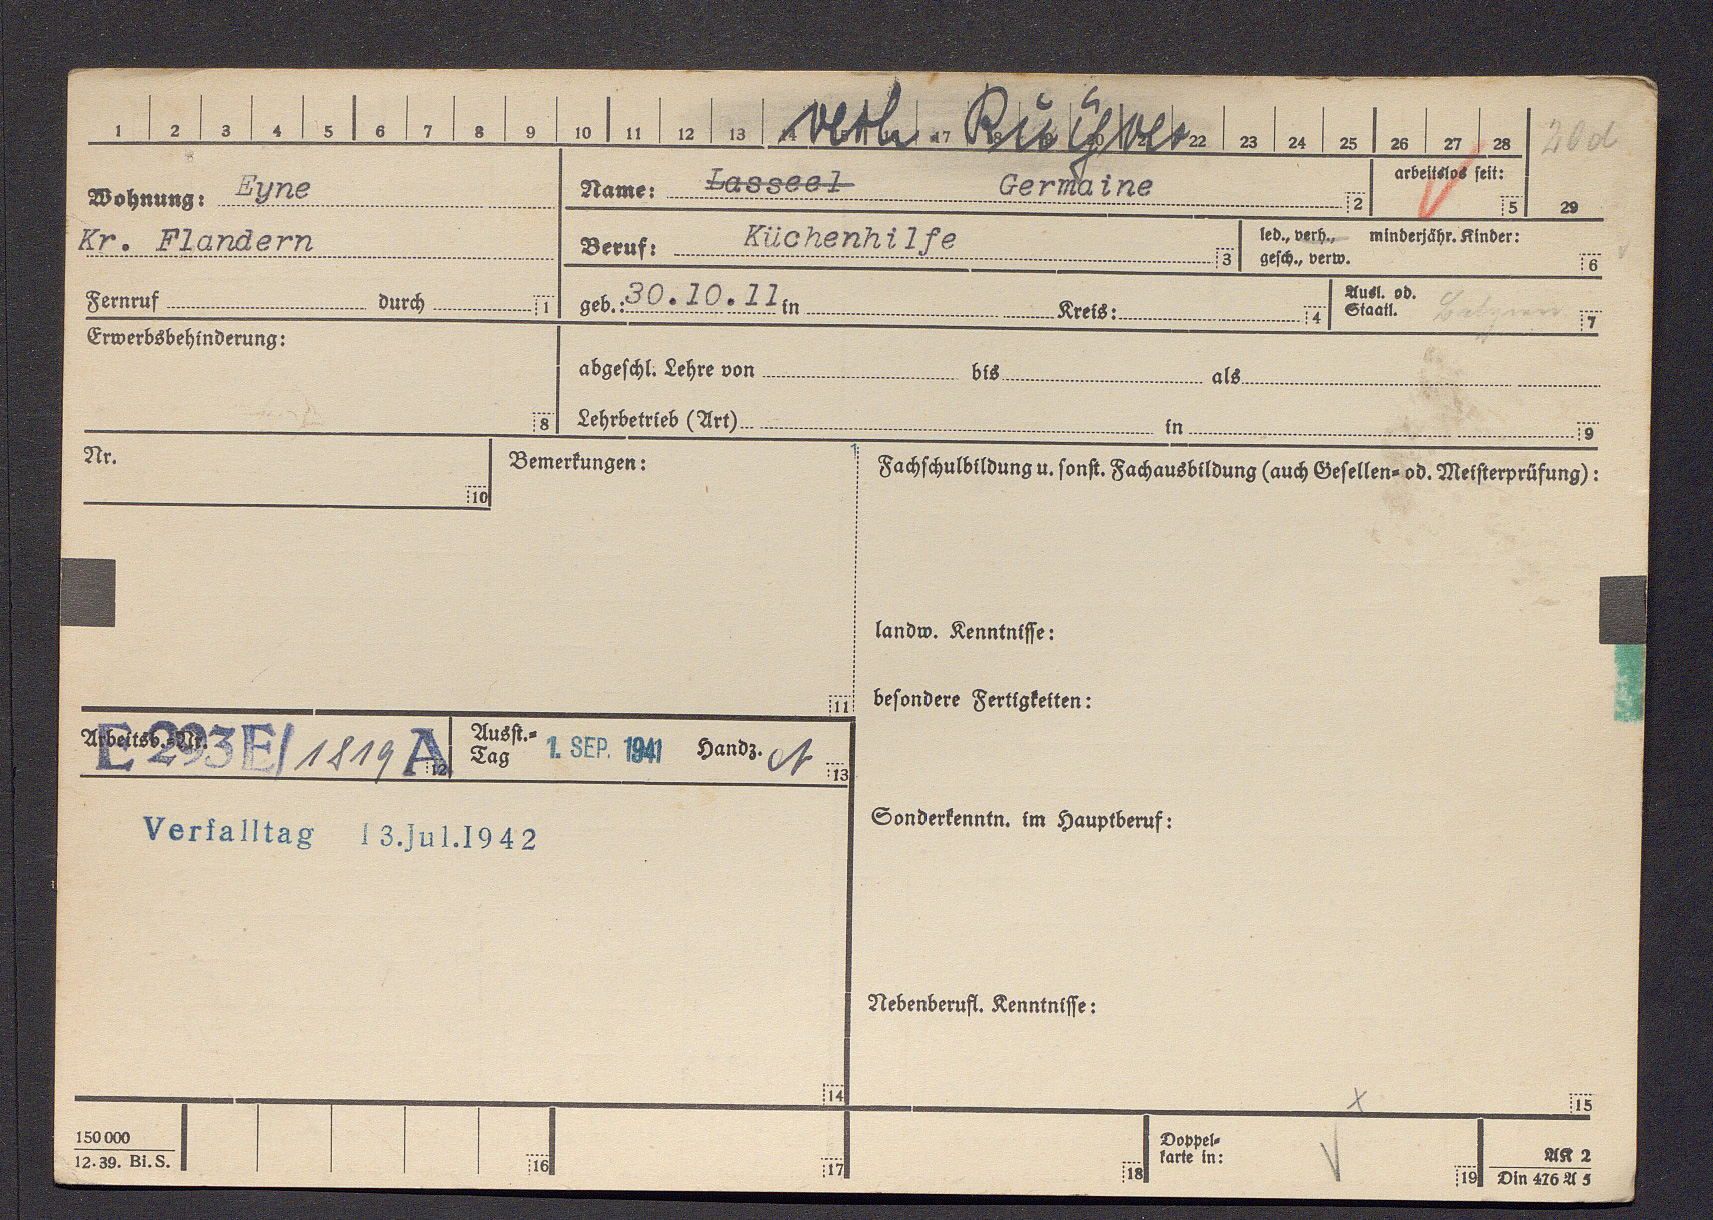 1 2 3 4 5 6 7 8 9 10 11 12 13 14 17 18 20 21 22 23 24 25 26 27 28 20d
verh.
Wohnung: Eyne Name: Lasseel Germaine 2 arbeitslos seit: 5 29
Kr. Flandern Beruf: Küchenhilfe 3 led., verh., minderjähr. Kinder:
gesch., verw. 6
Fernruf durch 1 geb.: 30.10.11 in Kreis: 4 Ausl. od.
Staatl. Belgien 7
Erwerbsbehinderung:
8
abgeschl. Lehre von bis als
Lehrbetrieb (Art) in 9
Nr. 10
Bemerkungen:
11
Fachschulbildung u. sonst. Fachausbildung (auch Gesellen- od. Meisterprüfung):
landw. Kenntnisse:
besondere Fertigkeiten:
Arbeitsb.-Nr. E 293E/1819 A 12 Ausst.-
Tag 1. SEP. 1941 Handz. 13
Verfalltag 13.Jul.1942
14
Sonderkenntn. im Hauptberuf:
Nebenberufl. Kenntnisse:
x
15
150 000
12.39. Bi.S.
16 17 18
Doppel-
karte in:
19
AK 2
Din 476 A 5